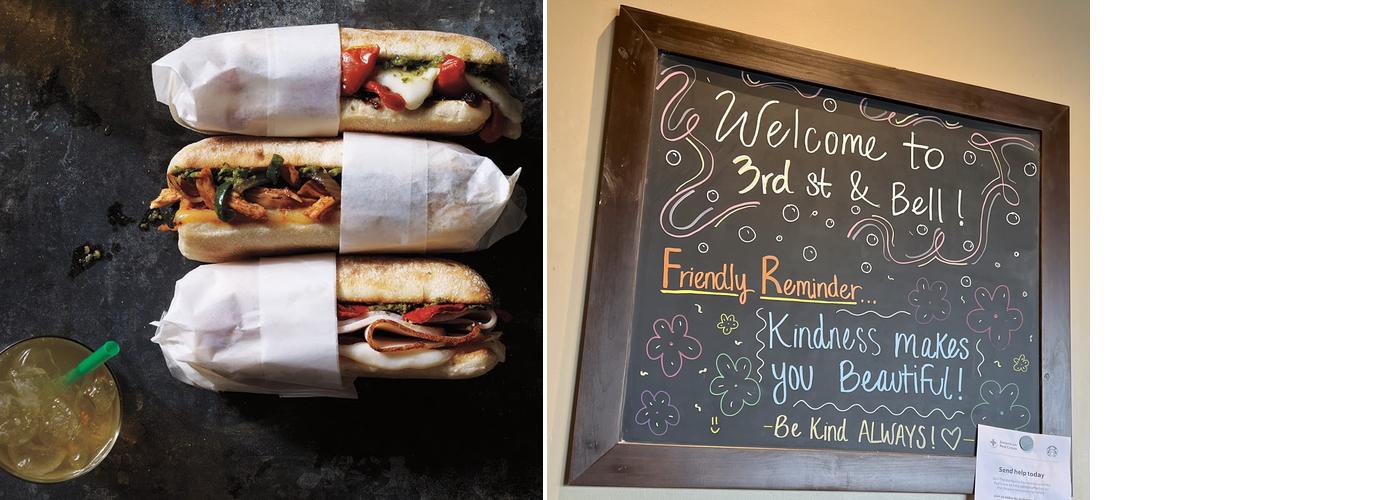 Welcome to
3rd st & Bell!
Friendly Reminder...
Kindness makes
you Beautiful!
-Be Kind ALWAYS! ♡-
American
Red Cross
Send help today